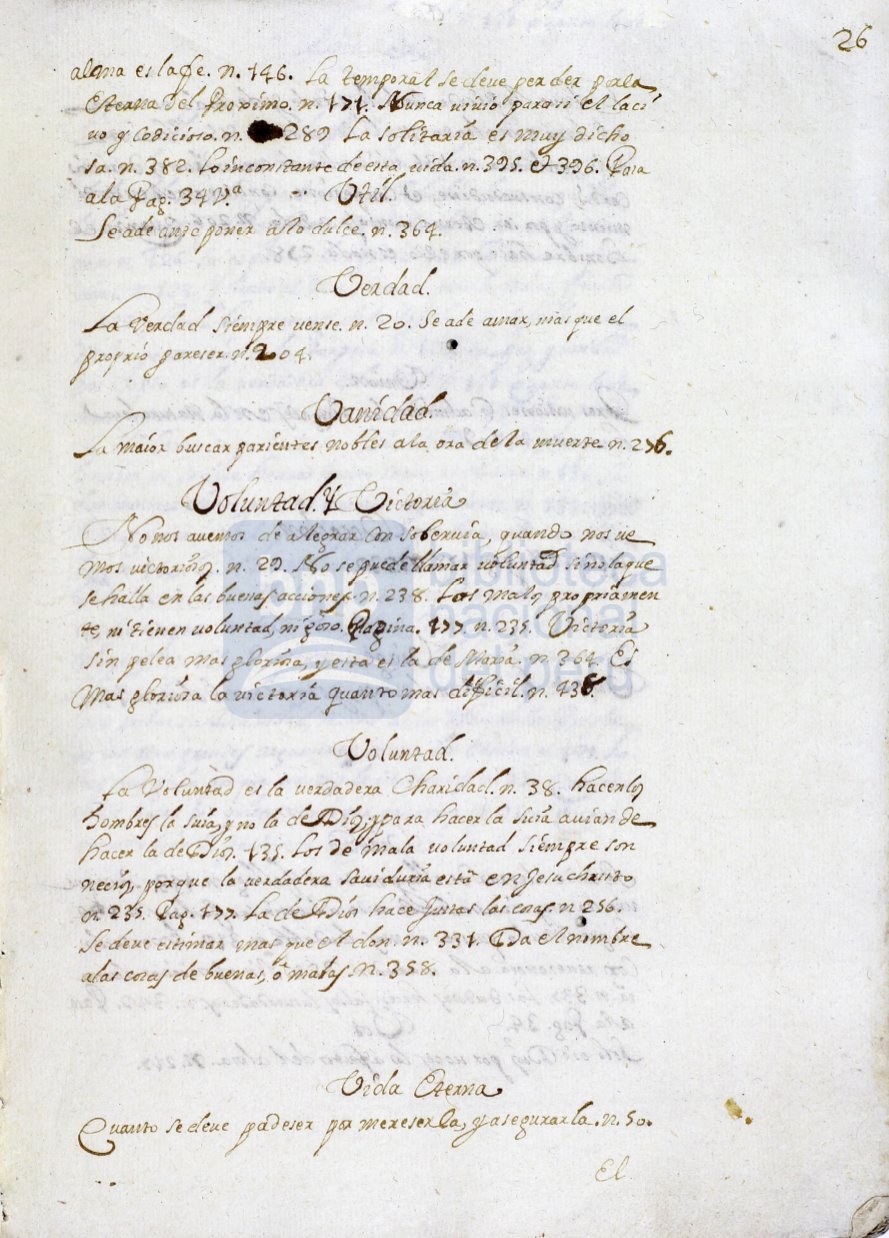 26
alma es la fe. n. 146. La temporal se deve perder por la
Eterna del Proximo. n. 171. Nunca vivio para si el laci
vo y Codicioso. n. 289 La solitaria es muy dicho
sa. n. 382. Lo inconstante de esta vida. n. 395. et 396. Pasa
a la Pag. 34 v.a Util.
Se a de ante poner a lo dulce. n. 364.
Verdad.
La Verdad siempre vense. n. 20. Se a de amar, mas que el
proprio pareser. n. 204.
Vanidad.
La maior buscar parientes nobles a la ora de la muerte. n. 276.
Voluntad. Y Victoria
No nos avemos de alegrar con sobervia, quando nos ve
mos victoriosos. n. 29. No se puede llamar voluntad sino la que
se halla en las buenas acciones. n. 238. Los malos propriamen
te, ni tienen voluntad, ni gozo. Pagina. 177. n. 235. Victoria
sin pelea mas gloriosa, y esta es la de Maria. n. 364. Es
Mas gloriosa la victoria quanto mas dificil. n. 436.
biblioteca
nacional
del perú
bnp
Voluntad.
La Voluntad es la verdadera Charidad. n. 38. hacer los
hombres la suia, y no la de Dios, y para hacer la suia avian de
hacer la de Dios. 135. Los de mala voluntad siempre son
necios, porque la verdadera saviduria está en Jesu christo
n. 235. Pag. 177. La de Dios hace justas las cosas. n 256.
Se deve estimar mas que el don. n. 331. Da el nombre
a las cosas de buenas, ó malas. n. 358.
Vida Eterna
Cuanto se deve padeser por mereserla, y asegurarla. n. 50.
El